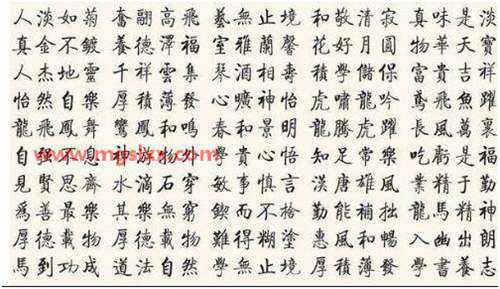 人淡如菊 奮翮高飛 藝無止境 和敬清寂 真味是淡
真金不鍍 養德澤福 室雅蘭馨 花好月圓 物華天寶
人杰地靈 千祥雲集 琴酒相壽 積學儲保 富貴吉祥
怡然自樂 厚積薄發 心曠神怡 虎嘯龍吟 鳶飛魚躍
龍飛鳳舞 鸞鳳和鳴 春和景明 龍騰虎躍 長風萬裏
自 見 神 物外 學貴心悟 知足常樂 吃虧是福
見賢思齊 水滴石穿 敏事慎言 漢唐雄風 業精于勤
爲善最樂 其樂無窮 鍥而不捨 勤能補拙 龍馬精神
厚德載物 厚德載物 難得糊塗 惠風和暢 入幽出朗
馬到功成 道法自然 學無止境 厚積薄發 學書養志